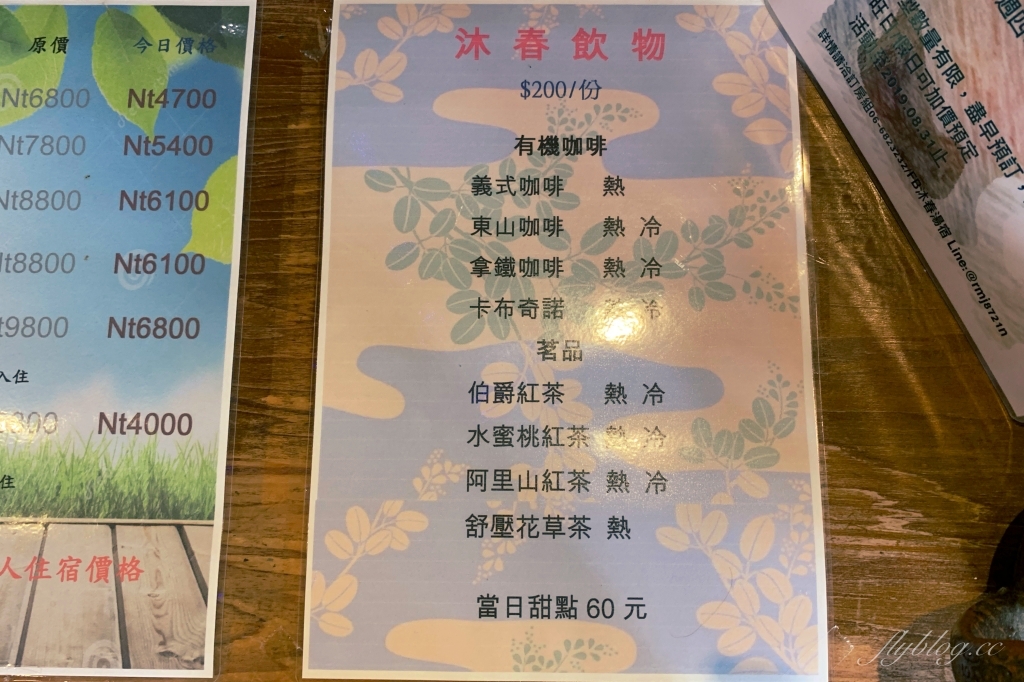 原價 今日價格
Nt6800 Nt4700
Nt7800 Nt5400
Nt8800 Nt6100
Nt8800 Nt6100
t9800 Nt6800
入住
Nt4000
住
人住宿價格
沐春飲物
$200/份
有機咖啡
義式咖啡 熱
東山咖啡 熱 冷
拿鐵咖啡 熱 冷
卡布奇諾 熱 冷
茗品
伯爵紅茶 熱 冷
水蜜桃紅茶 熱 冷
阿里山紅茶 熱 冷
舒壓花草茶 熱
當日甜點 60 元
週四
數量有限，盡早預訂
旺日、假日可加價預定
2019.08.31止
詳情請洽訂房組06-6823232/FB沐春湯宿 Line:@rmj8721n
flyblog.cc